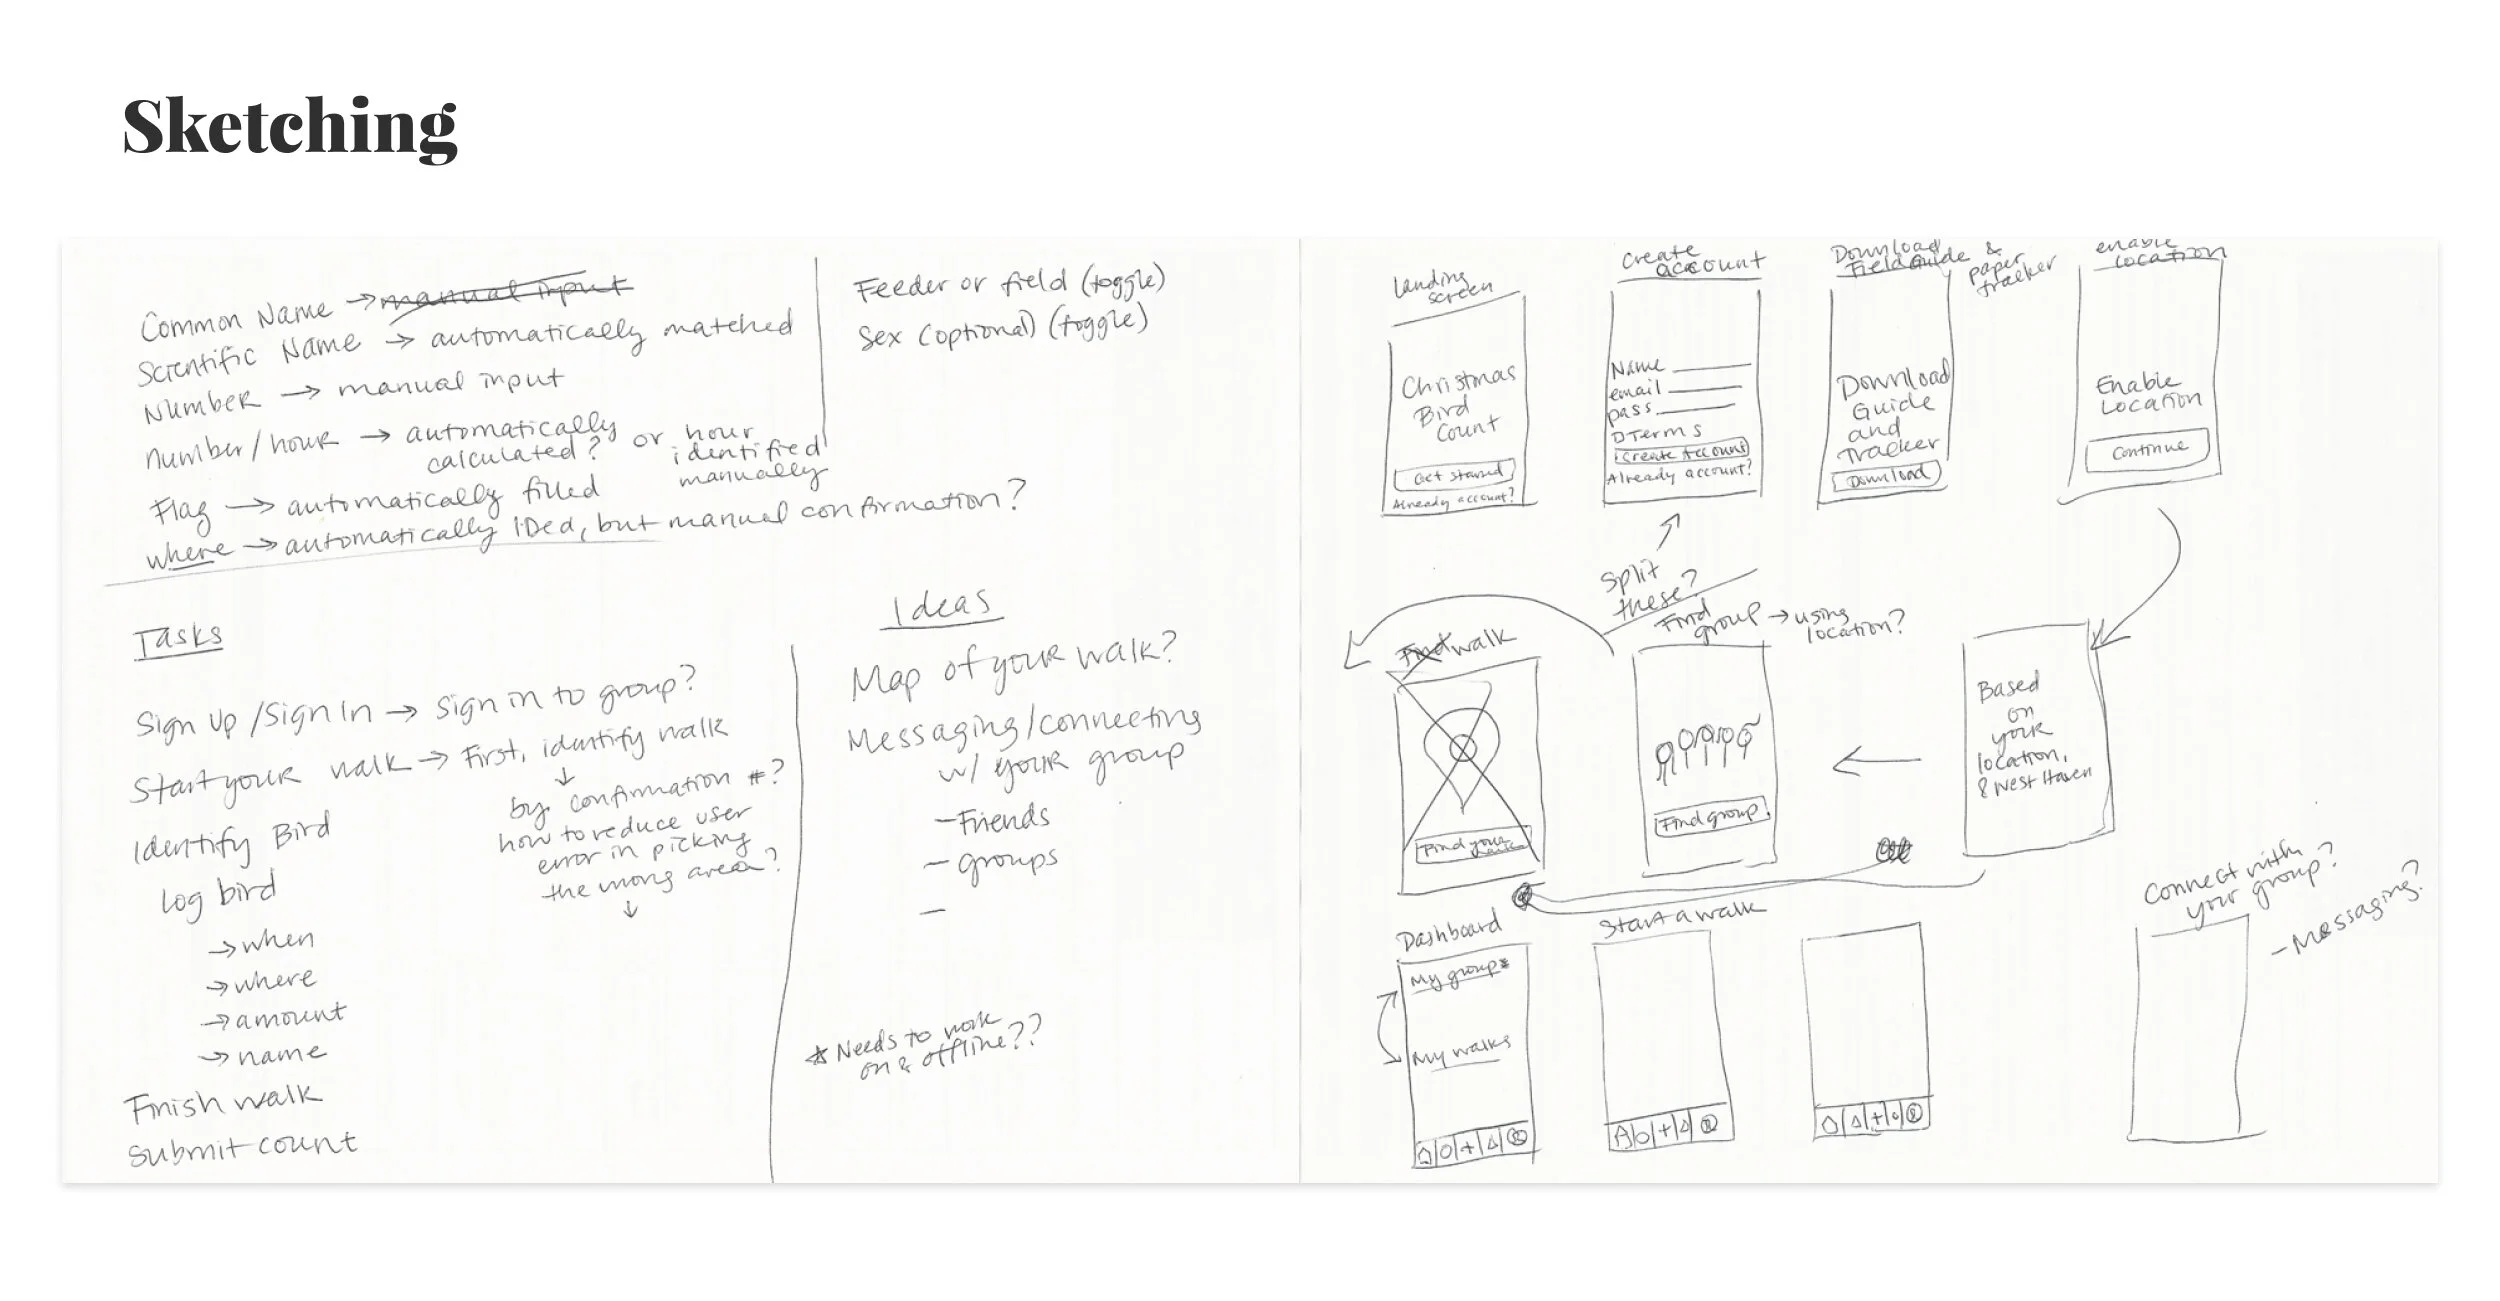 Sketching
Common Name → manual input
Scientific Name → automatically matched
Number → manual input
number/hour → automatically calculated? or hour identified manually
Flag → automatically filled
where → automatically IDed, but manual confirmation?
Feeder or field (toggle)
Sex (optional) (toggle)
Tasks
Sign Up / Sign In → Sign in to group?
Start your walk → First, identify walk
↓
by confirmation #?
how to reduce user
error in picking
the wrong area?
↓
Identify Bird
Log bird
→ when
→ where
→ amount
→ name
Finish walk
Submit count
Ideas
Map of your walk?
Messaging/connecting
w/ your group
- Friends
- groups
-
* Needs to work
on & offline??
Landing
screen
Christmas
Bird
Count
Get started
Already account?
Create
account
Name
email
pass
Terms
Create Account
Already account?
Download
Field Guide &
paper
tracker
Download
Guide
and
Tracker
Download
enable
location
Enable
Location
Continue
Split
these?
Find walk
Find your
Find
group → using
location?
Find group
Based
on
your
location,
& Nest Haven
Dashboard
My group*
My walks
Start a walk
Connect with
your group?
- Messaging?